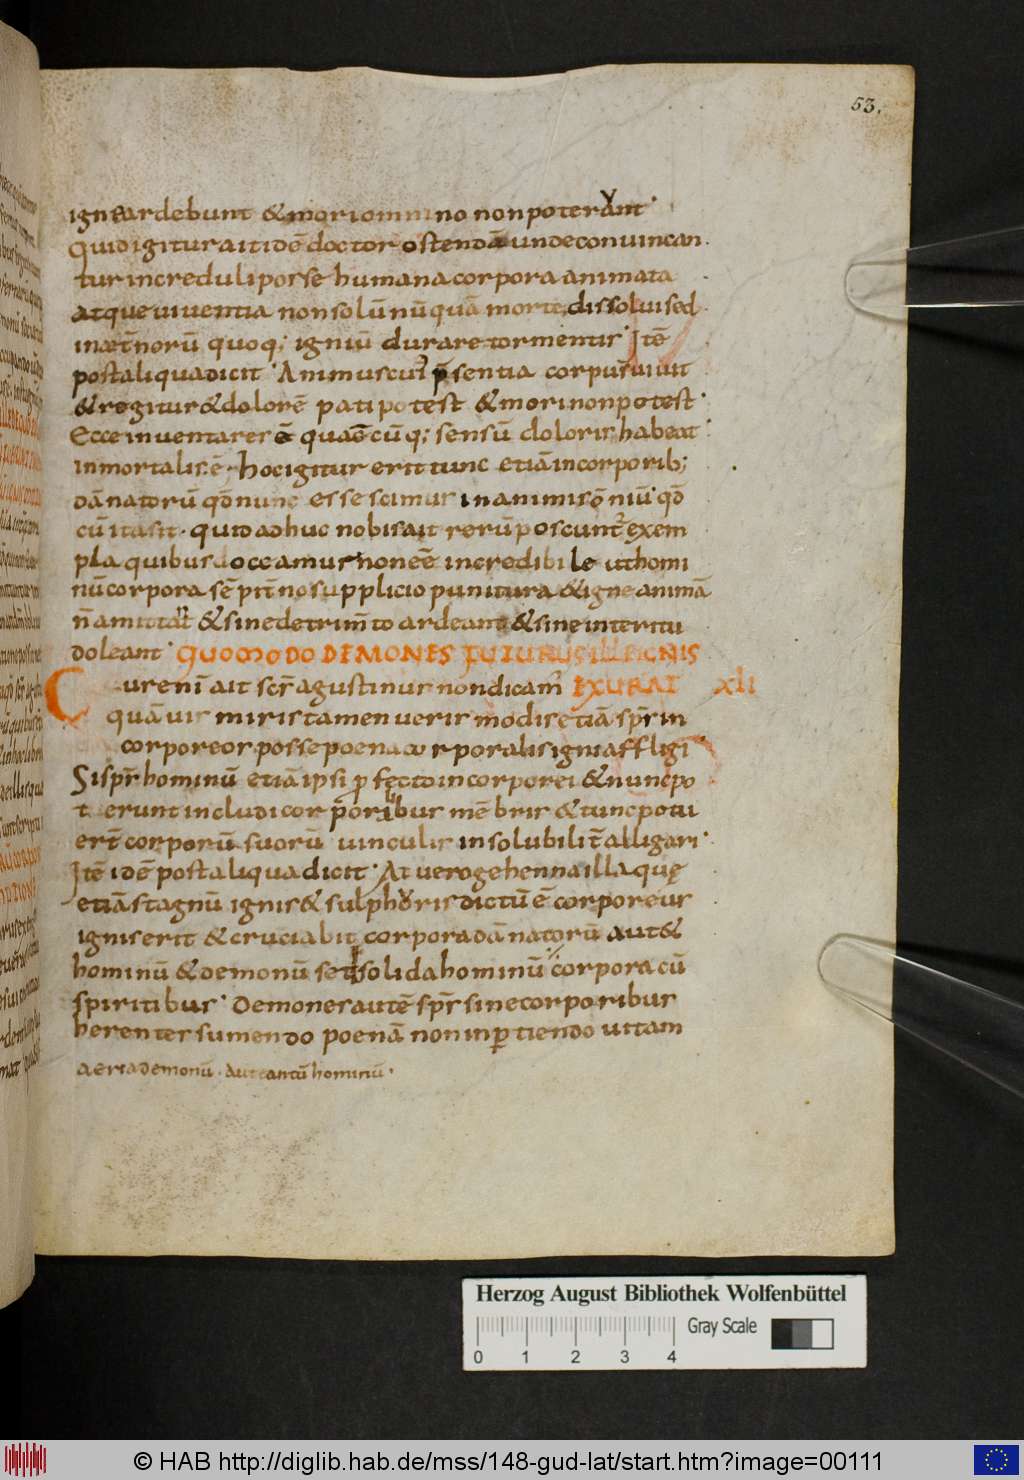 53.
igneardebunt & moriomnino nonpoterunt·
Quidigitur aitidē doctor ostendā undeconuincan
tur increduliposse humana corpora animata
atque uiuentia nonsolū nūquā morte dissolui sed
inæt̄norū quoq; igniū durare tormentis· Itē
postaliqua dicit· Animus cuī p̄sentia corpus uiuit
& regitur & dolorē pati potest & mori nonpotest·
Ecce inuenta res ē quae cū q; sensū doloris habeat
inmortalis ē· hoc igitur erit tunc etiā incorporib;
dānatorū qd̄ nunc esse scimus in animis om̄niū· qd̄
cū ita sit· quid adhuc nobis ait rerū poscunt̄ exem
pla quibus doceamus non eē incredibile ut homi
nū corpora sēpit̄no supplicio punitura & igne animā
n̄ amittāt & sine detrim̄to ardeant & sine interitu
doleant· QUOMODO DEMONES FUTURUS ILLE IGNIS
Cur enī ait sc̄s agustinus non dicam̄ EXURAT XLI
quāuis miris tamen ueris modis etiā sp̄s in
corporeos posse poena corporalis ignis affligi·
Si sp̄s hominū etiā ipsi p fecto incorporei & nunc po
t erunt includi corp̄oribus mēbris & tunc potu
erī corporū suorū uinculis insolubilit̄ alligari·
Itē idē postaliqua dicit· At uero gehenna illa quę
etiā stagnū ignis & sulphoris dictū ē corporeus
ignis erit & cruciabit corpora dānatorū aut &
hominū & demonū sed solida hominū corpora cū
spiritibus· Demones autē sp̄s sine corporibus
herentes sumendo poenā non inp tiendo uitam
aeria demonū· aut tantū hominū·
Herzog August Bibliothek Wolfenbüttel
Gray Scale
0 1 2 3 4
© HAB http://diglib.hab.de/mss/148-gud-lat/start.htm?image=00111